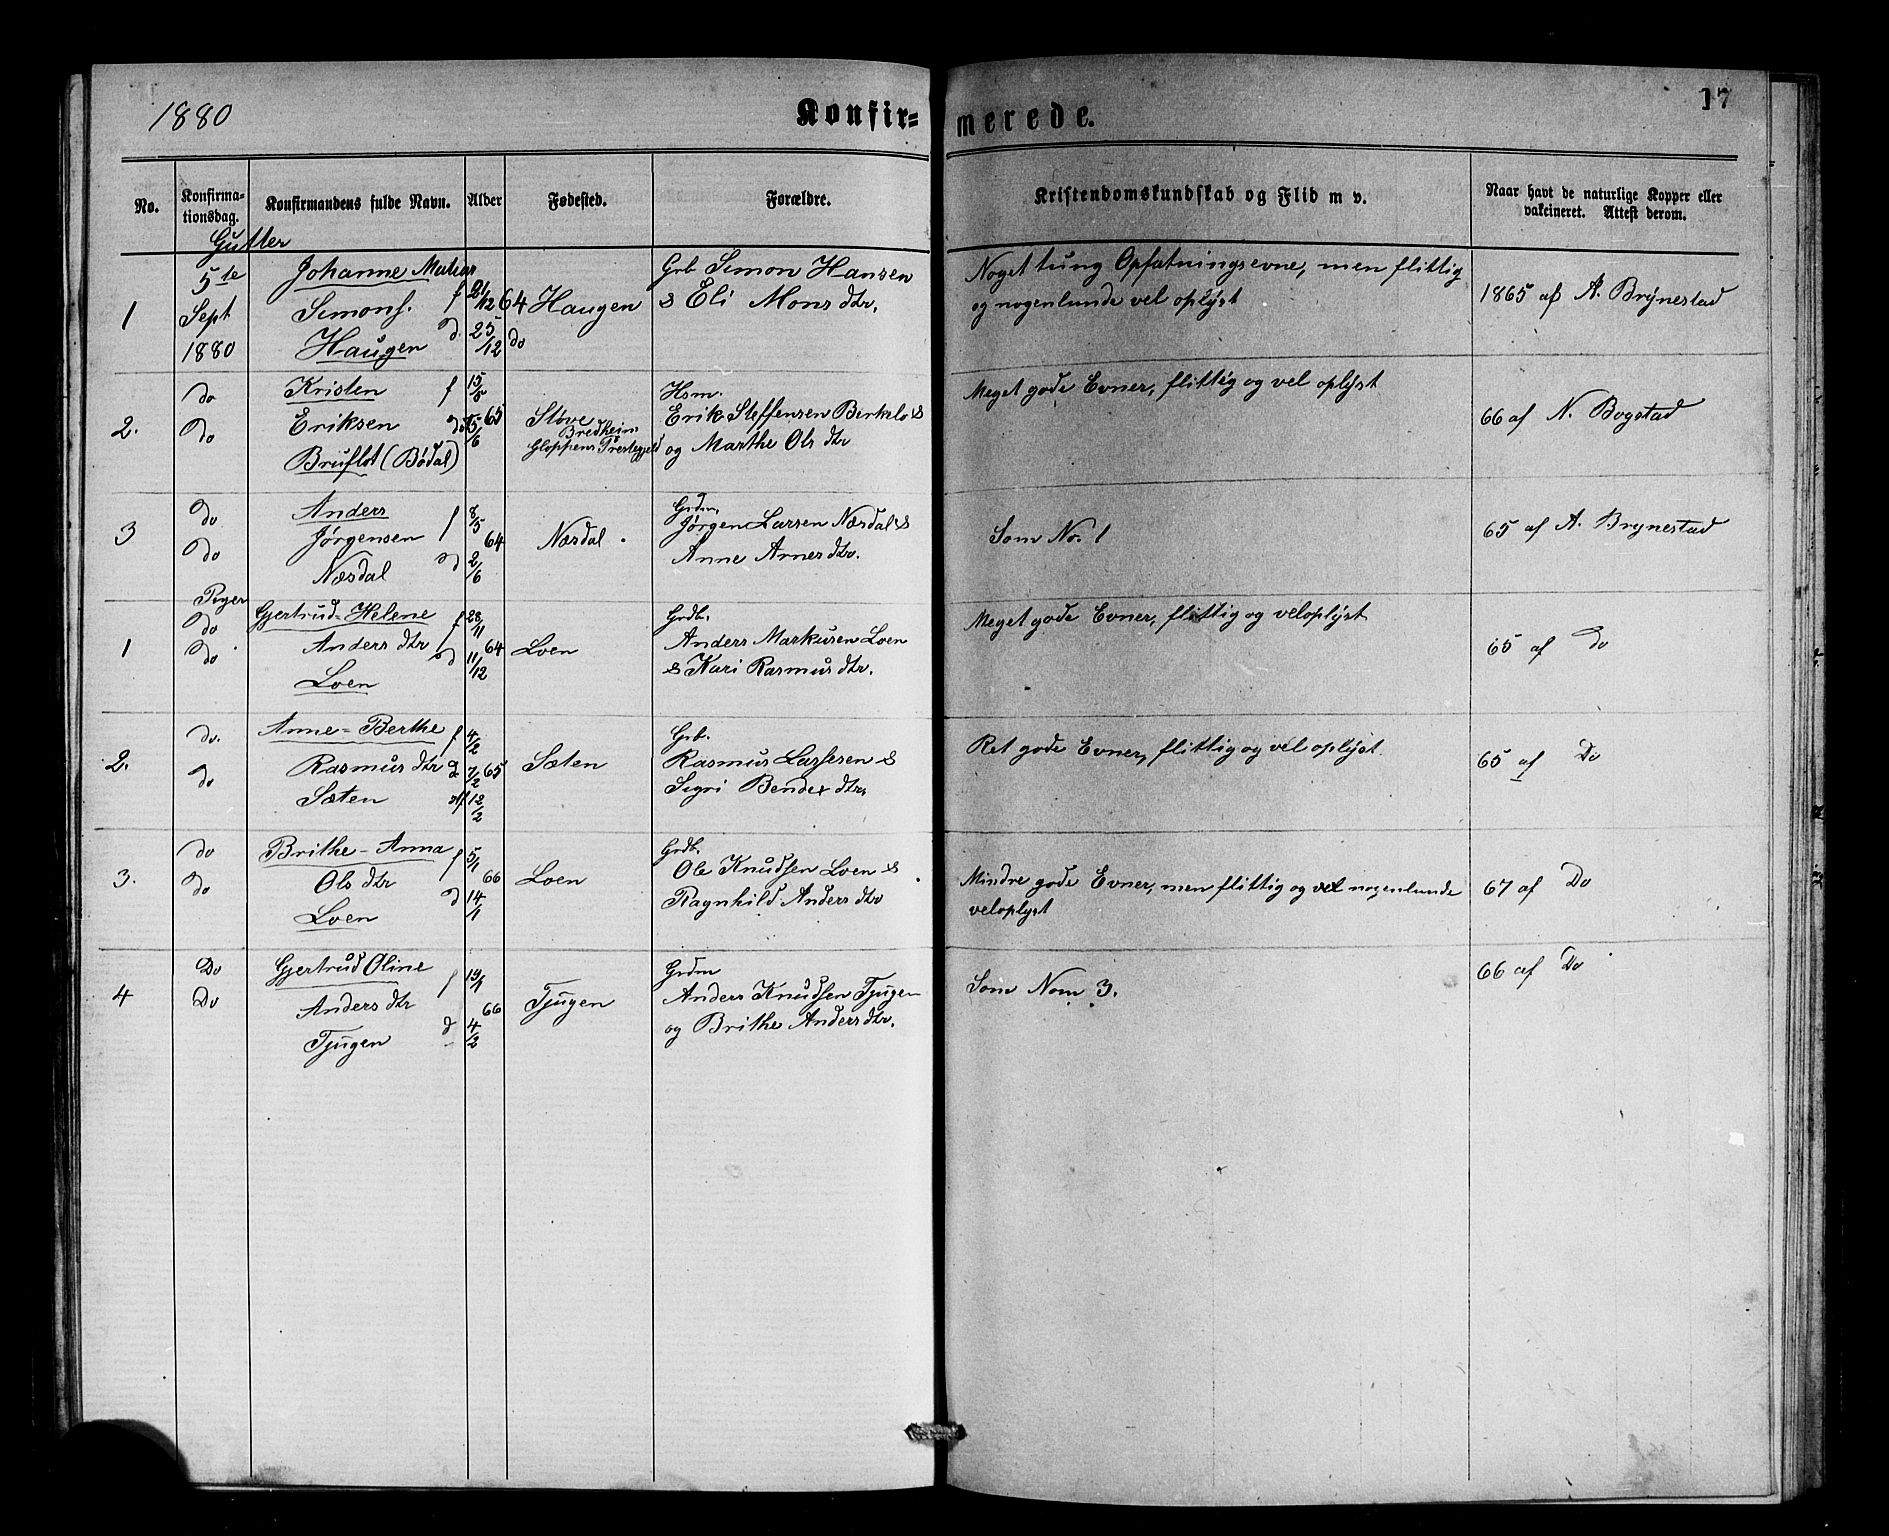 1880
Konfir=
merede.
17
No.
Konfirma-
tionsdag.
Konfirmandens fulde Navn.
Alder
Fødested.
Forældre.
Kristendomskundskab og Flid m v.
Naar havt de naturlige Kopper eller
vakcineret. Attest derom.
Gutter
1
5te
Sept
1880
Johanne
Simons.
Haugen
f 21/12 64
d. 25/12
Haugen
do
Grb Simon Hansen
& Eli Mons dtr.
Noget tung Opfatningsevne, men flittig
og nogenlunde vel oplyst
1865 af A. Brynestad
2.
do
Do
Kristen
Eriksen
Bruflot (Bødal)
f 15/5
65
/6
Støve
Bredheim
Gloppens Prestegjeld
Hsm.
Erik Steffensen Berkelo &
og Marthe Ols dtr
Meget gode Evner, flittig og vel oplyst
66 af N. Bogstad
3
Do
Do
Anders
Jørgensen
Næsdal
f 8/5
64
d 2/6
Næsdal.
Grdm.
Jørgen Larsen Næsdal &
Anne Arnes dtr.
Som No. 1
65 af A. Brynestad
Piger
1
Do
Do
Gjertrud-Helene
Anders dtr
Loen
f 28/11
64
d 11/12
Loen
Grdb.
Anders Markusen Loen
& Kari Rasmus dtr.
Meget gode Evner, flittig og veloplyst
65 af Do
2.
do.
do
Anne-Berthe
Rasmus dtr
Sæten
f 4/2
d 7/2 65
12/2
Sæten
Grb.
Rasmus Larsesen &
Sigri Bendex dtr.
Ret gode Evner, flittig og vel oplyst
65 af Do
3.
do
do
Brithe-Anna
Ols dtr
Loen
f 5/1
66
d 14/1
Loen
Grdb.
Ole Knudsen Loen &
Ragnhild Anders dtr
Mindre gode Evner, men flittig og vel nogenlunde
veloplyst
67 af Do
4
Do
Do
Gjertrud Oline
Anders dtr
Tjugen
f 19/1
66
d 4/2
Tjugen
Grdm
Anders Knudsen Tjugen
og Brithe Anders dtr.
Som Nom 3.
66 af Do